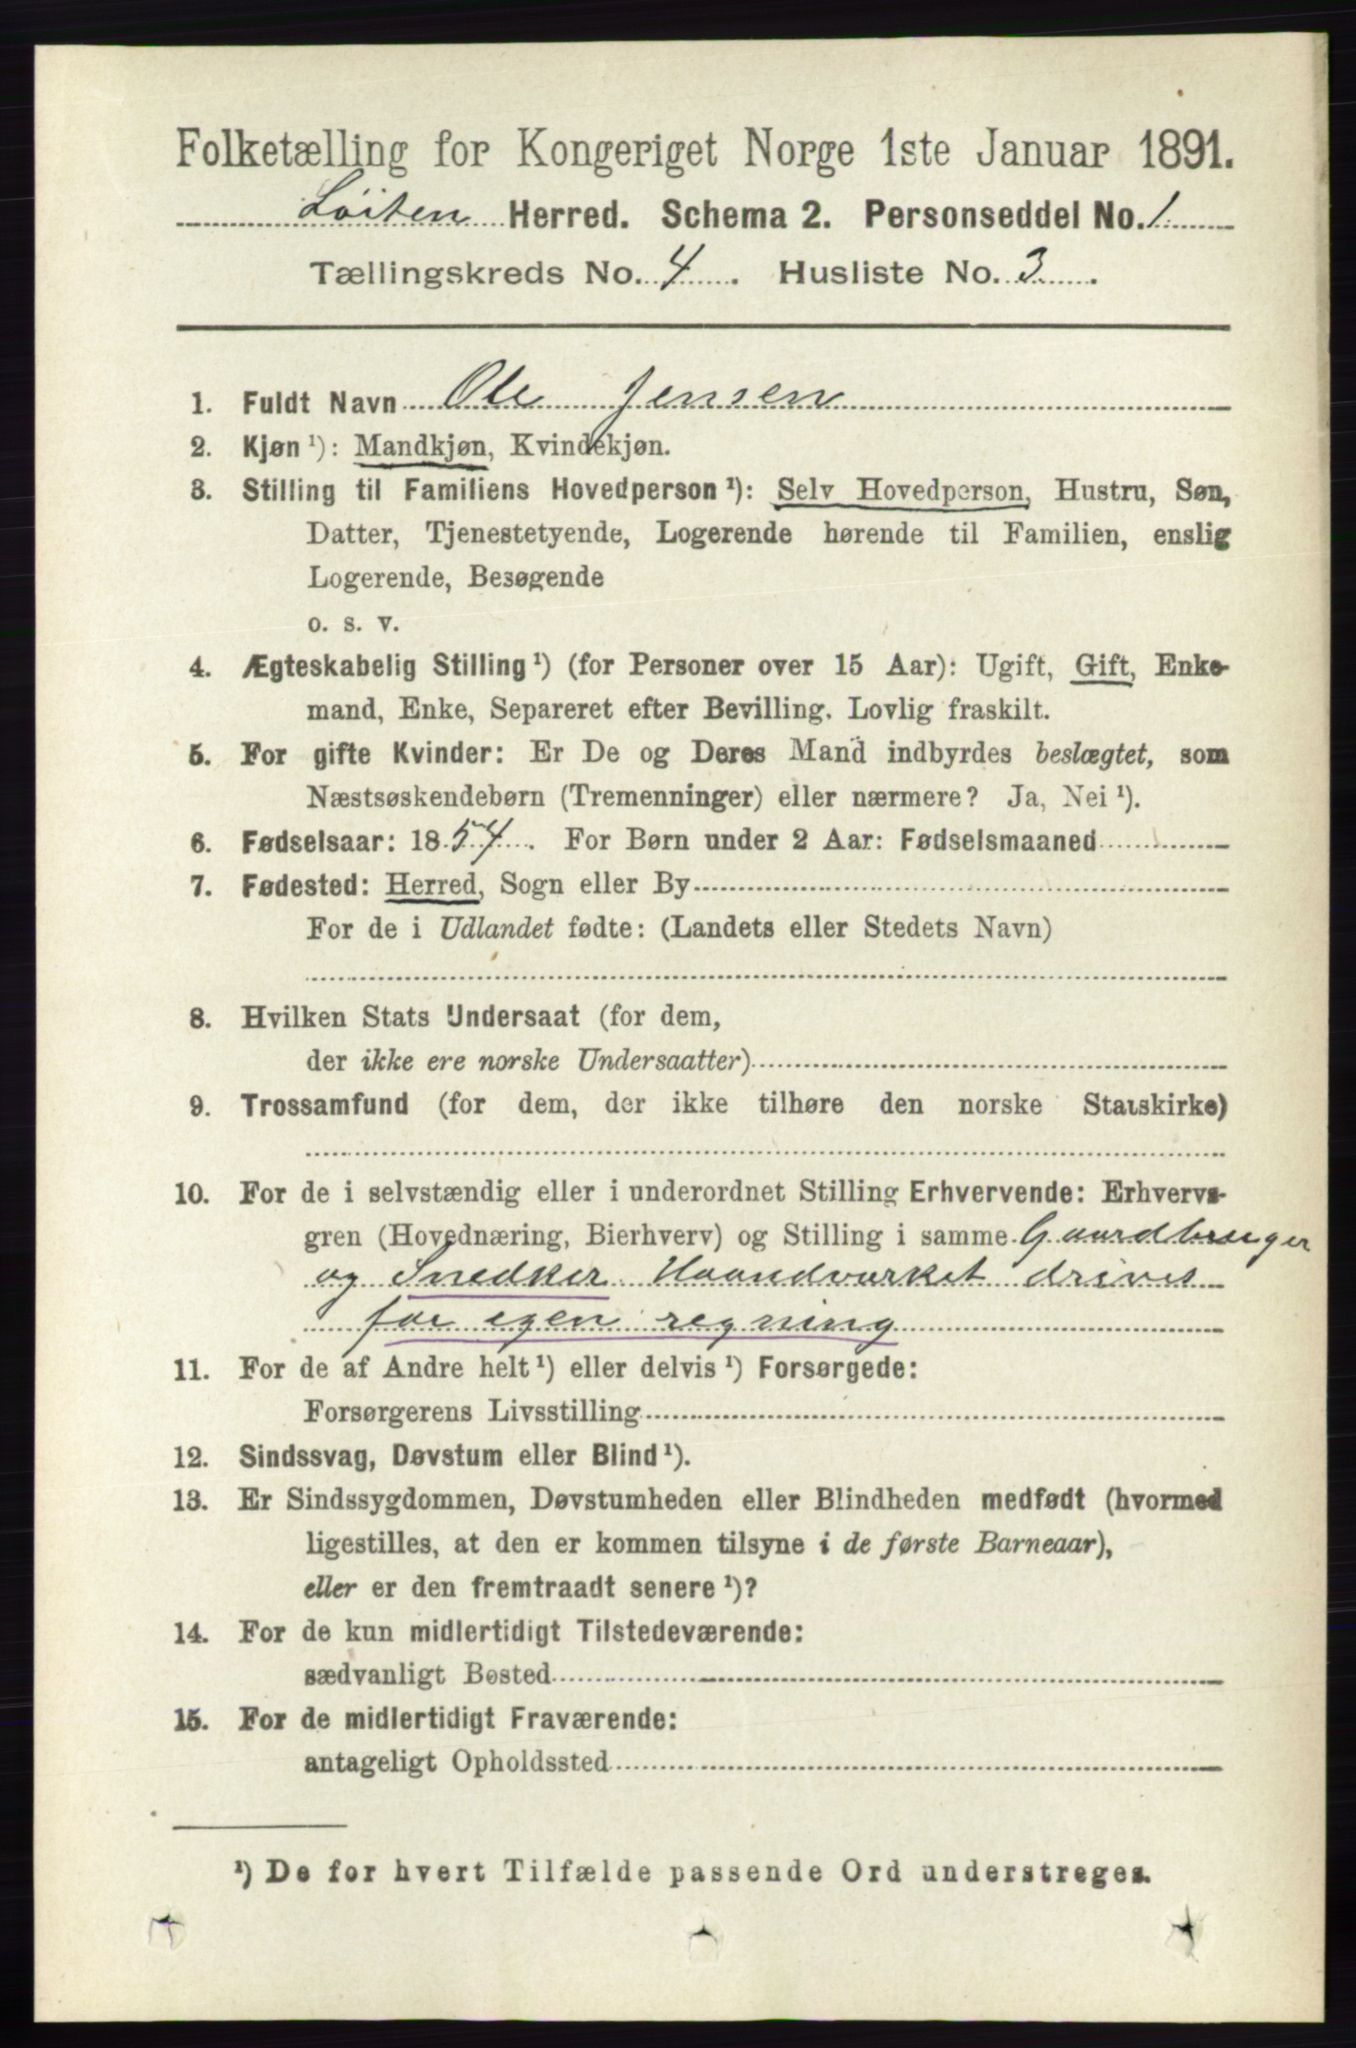 Folketælling for Kongeriget Norge 1ste Januar 1891.
Løiten Herred. Schema 2. Personseddel No. 1
Tællingskreds No. 4. Husliste No. 3.
1. Fuldt Navn Ole Jensen
2. Kjøn ¹): Mandkjøn, Kvindekjøn.
3. Stilling til Familiens Hovedperson ¹): Selv Hovedperson, Hustru, Søn,
Datter, Tjenestetyende, Logerende hørende til Familien, enslig
Logerende, Besøgende
o. s. v.
4. Ægteskabelig Stilling ¹) (for Personer over 15 Aar): Ugift, Gift, Enke-
mand, Enke, Separeret efter Bevilling. Lovlig fraskilt.
5. For gifte Kvinder: Er De og Deres Mand indbyrdes beslægtet, som
Næstsøskendebørn (Tremenninger) eller nærmere? Ja, Nei ¹).
6. Fødselsaar: 1854. For Børn under 2 Aar: Fødselsmaaned
7. Fødested: Herred, Sogn eller By
For de i Udlandet fødte: (Landets eller Stedets Navn)
8. Hvilken Stats Undersaat (for dem,
der ikke ere norske Undersaatter)
9. Trossamfund (for dem, der ikke tilhøre den norske Statskirke)
10. For de i selvstændig eller i underordnet Stilling Erhvervende: Erhvervs-
gren (Hovednæring, Bierhverv) og Stilling i samme Gaardbruger
og Snedker Haandværket drives
for egen regning
11. For de af Andre helt ¹) eller delvis ¹) Forsørgede:
Forsørgerens Livsstilling
12. Sindssvag, Døvstum eller Blind ¹).
13. Er Sindssygdommen, Døvstumheden eller Blindheden medfødt (hvormed
ligestilles, at den er kommen tilsyne i de første Barneaar),
eller er den fremtraadt senere ¹)?
14. For de kun midlertidigt Tilstedeværende:
sædvanligt Bosted
15. For de midlertidigt Fraværende:
antageligt Opholdssted
¹) De for hvert Tilfælde passende Ord understreges.